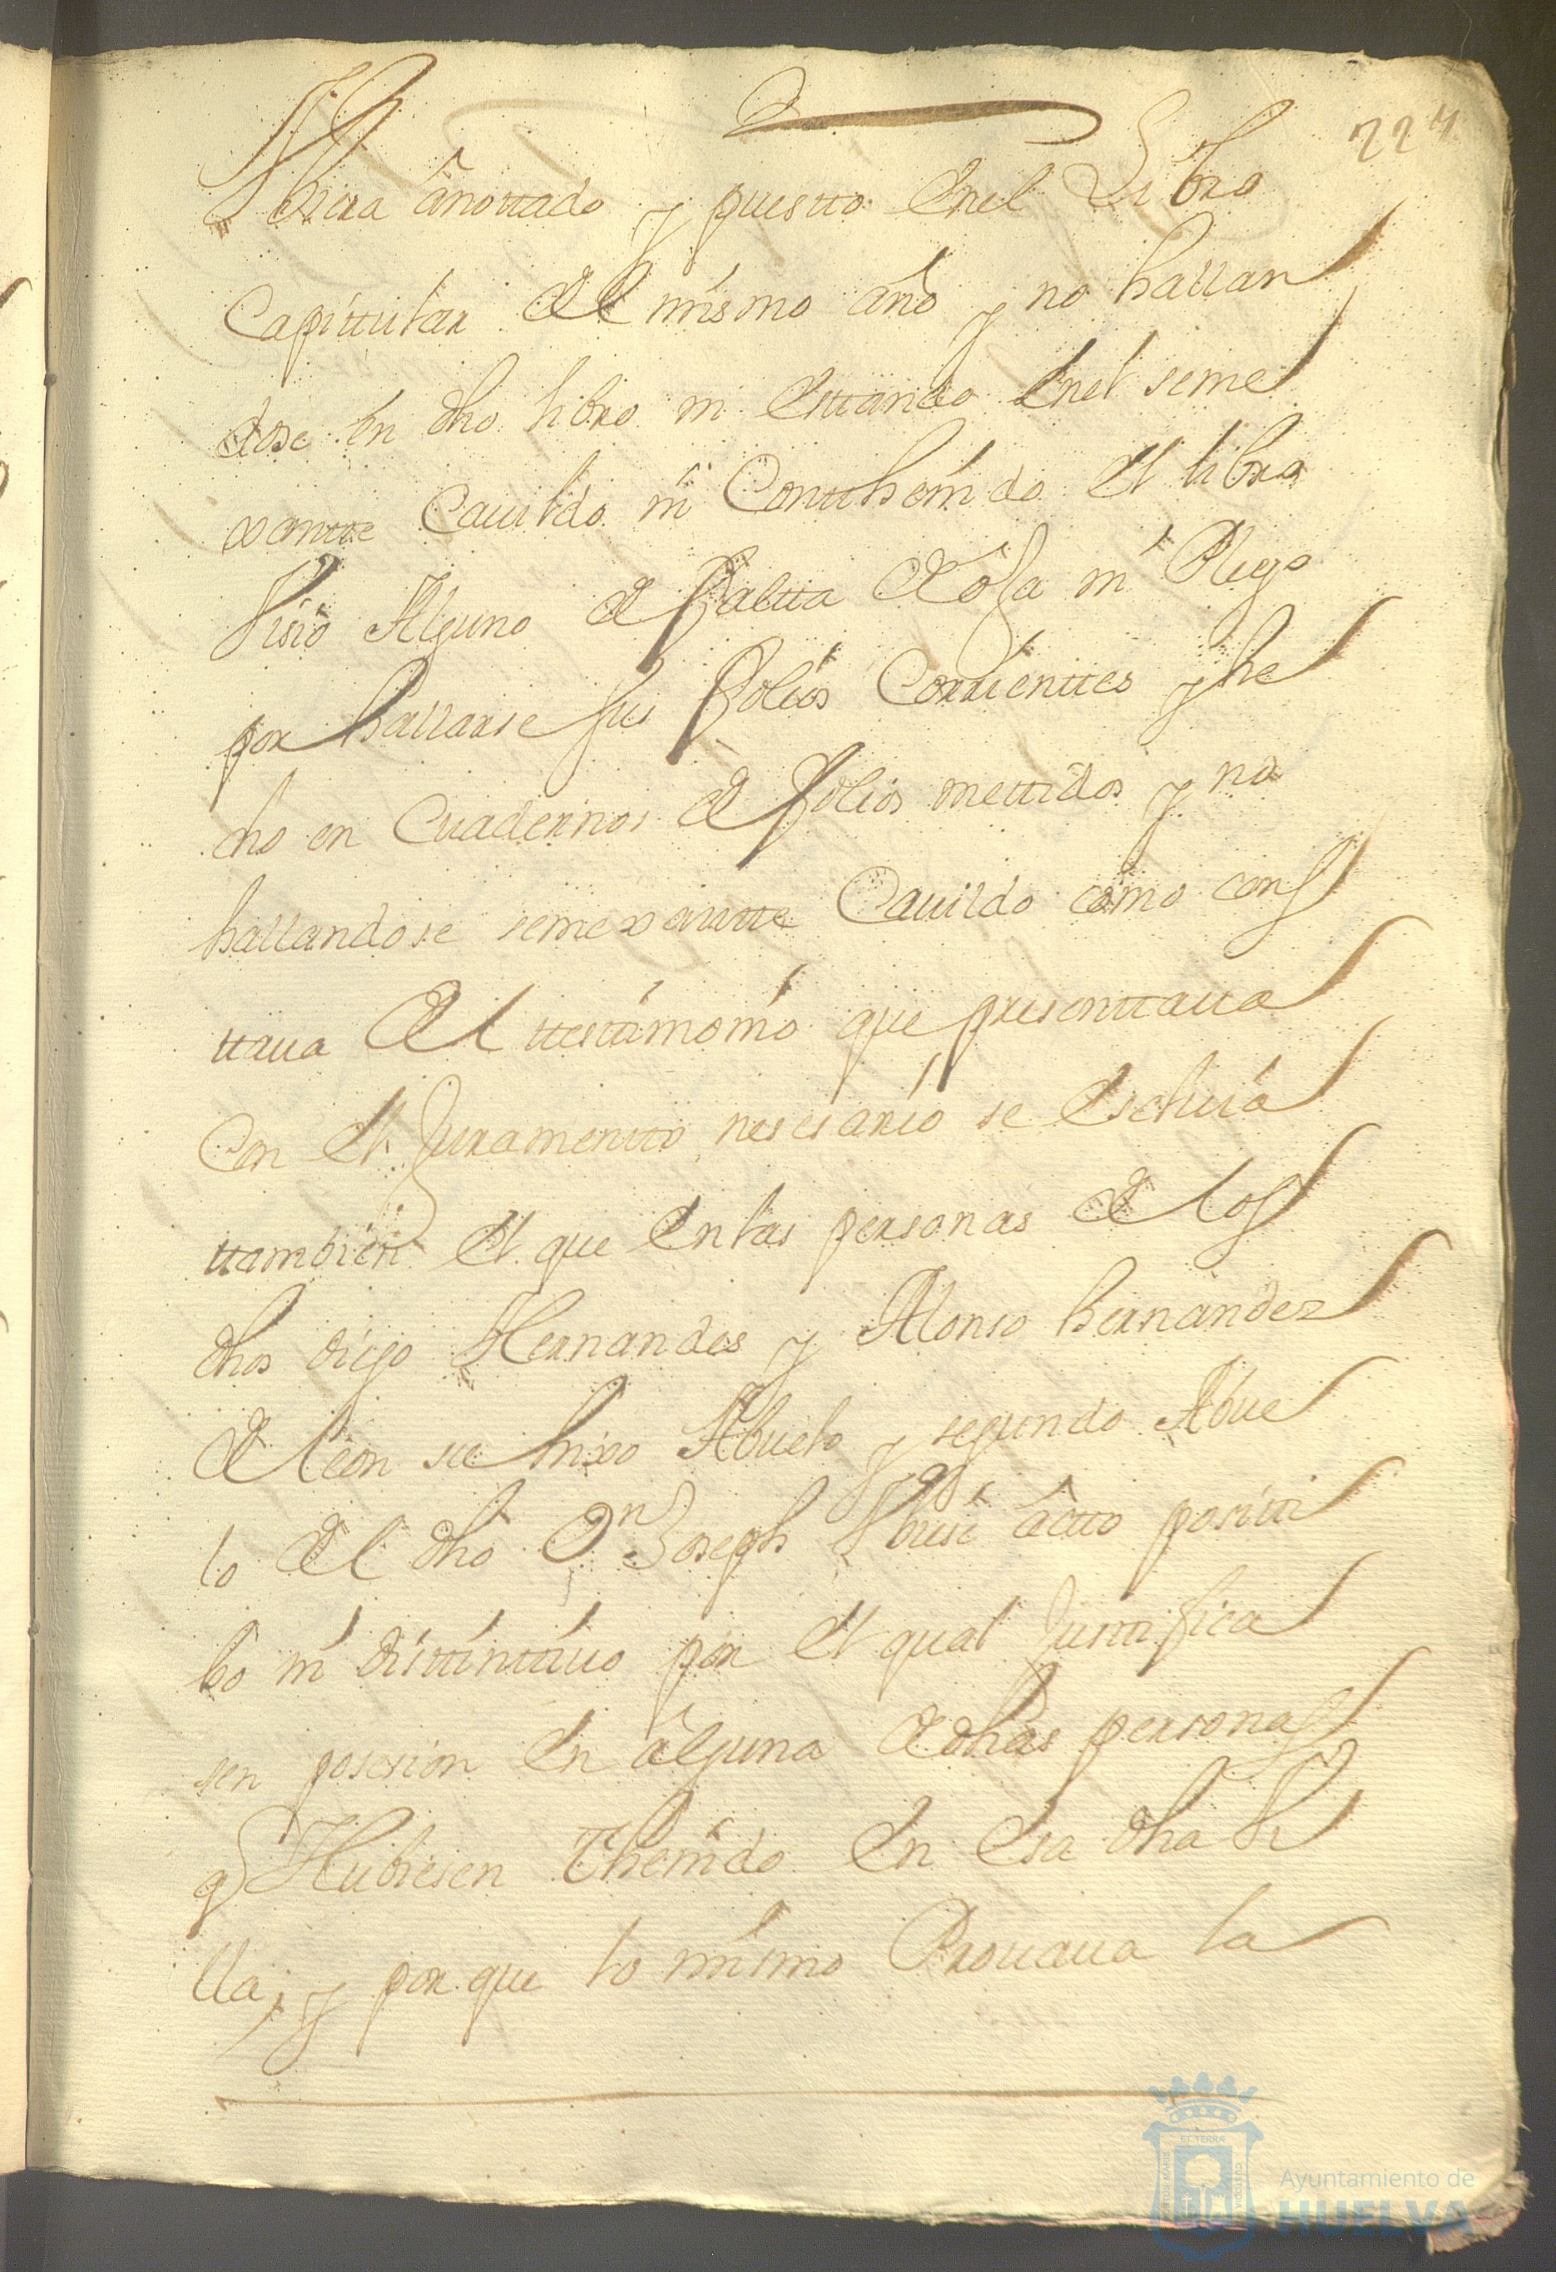 227
Ubiera anottado y puestto En el Libro
Capittular del mismo año y no hallan
dose en dho libro ni Esttando En el seme
xantte Cauildo ni Conthenido El libro
Visio Alguno de faltta de oja ni Pliego
por hallarse sus folios Corrienttes y he
cho en Cuadernos de folios mettidos y no
hallandose semexantte Cauildo como cons
ttaua del ttestimonio que presenttaua
Con El Juramentto nesesario se Escluia
ttambien El que En las personas de los
dhos diego Hernandes y Alonso hernandez
de leon su hixo Abuelo y segundo Abue
lo del dho Dn Joseph Ubiese actto positi
bo ni disttinttiuo por El qual Justtifica
sen posesion En alguna de dhas personas
q Hubiesen Thenido En Esa dha Vi
lla, y por que lo mismo Prouaua la
ET TERRÆ
Ayuntamiento de
HUELVA